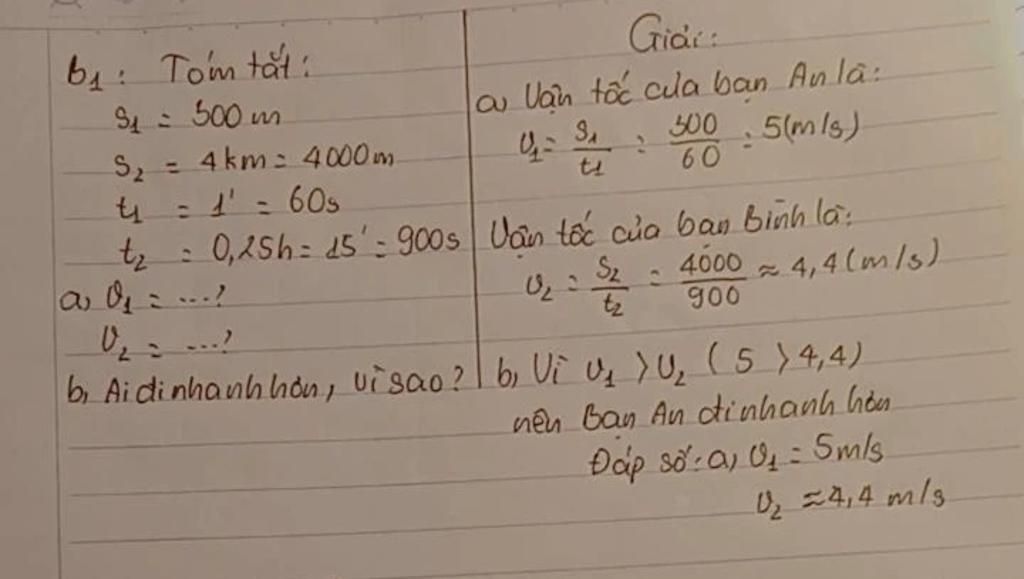 b1: Tóm tắt:
s1 = 300m
s2 = 4km = 4000m
t1 = 1' = 60s
t2 = 0,25h = 15' = 900s
a, v1 = ...?
v2 = ...?
b, Ai đi nhanh hơn, vì sao?
Giải:
a, Vận tốc của bạn An là:
v1 = s1/t1 = 300/60 = 5(m/s)
Vận tốc của bạn Bình là:
v2 = s2/t2 = 4000/900 ≈ 4,4(m/s)
b, Vì v1 > v2 (5 > 4,4)
nên Bạn An đi nhanh hơn
Đáp số: a, v1 = 5m/s
v2 ≈ 4,4 m/s